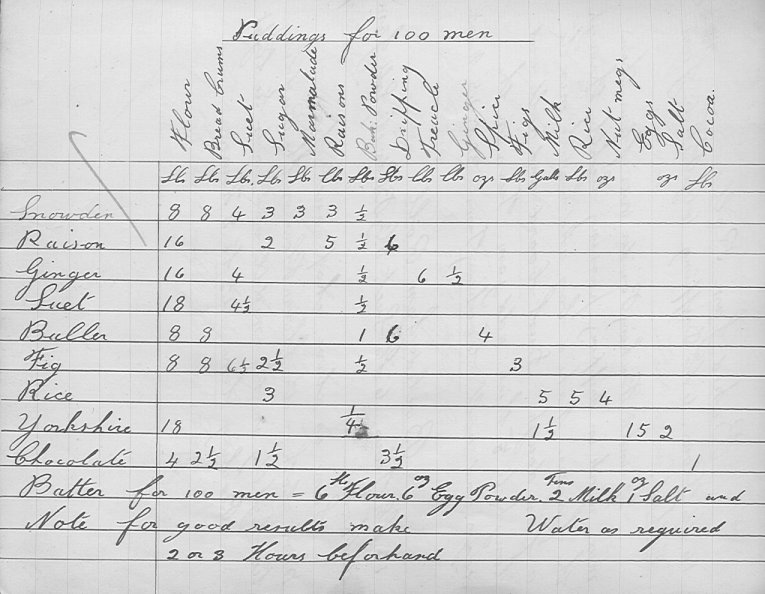 Puddings for 100 men
Flour Bread Crums Suet Sugar Marmalade Raisons Bak: Powder Dripping Treacle Ginger Spice Figs Milk Rice Nut megs Eggs Salt Cocoa.
lbs lbs lbs lbs lbs lbs lbs lbs lbs lbs ozs lbs Galls lbs ozs ozs lbs
Snowden 8 8 4 3 3 3 ½
Raison 16 2 5 ½ 6
Ginger 16 4 ½ 6 ½
Suet 18 4½ ½
Buller 8 8 1 6 4
Fig 8 8 6½ 2½ ½ 3
Rice 3 5 5 4
Yorkshire 18 ¼ 1½ 15 2
Chocolate 4 2½ 1½ 3½ 1
Batter for 100 men = 6 lb Flour. 6 oz Egg Powder. 2 Tins Milk 1 oz Salt and
Note for good results make Water as required
2 or 3 Hours beforhand